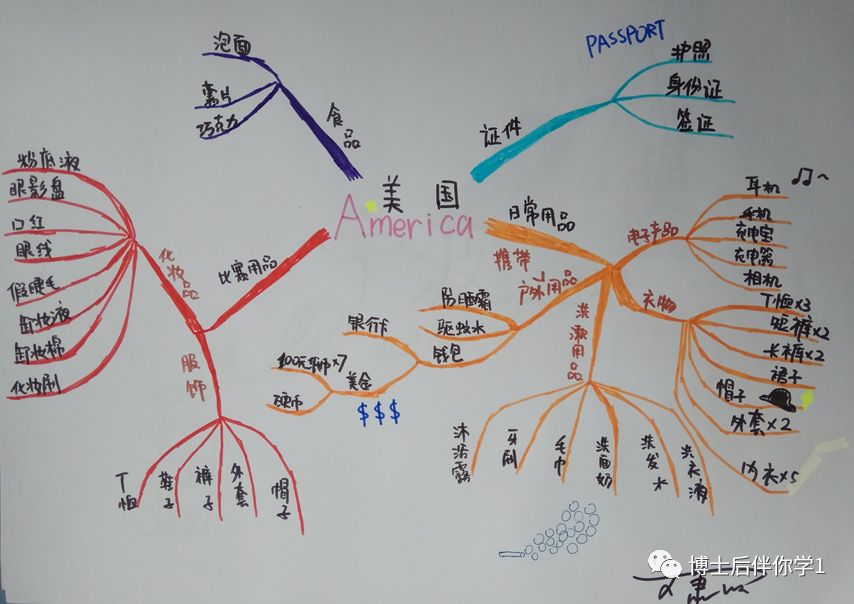 美国
America
证件
PASSPORT
护照
身份证
签证
日常用品
电子产品
耳机
手机
充电宝
充电器
相机
衣物
T恤×3
短裤×2
长裤×2
裙子
帽子
外套×2
内衣×5
洗漱用品
洗衣液
洗发水
洗面奶
毛巾
牙刷
沐浴露
携带
户外用品
防晒霜
驱蚊水
钱包
银行卡
美金
$$$
硬币
比赛用品
化妆品
粉底液
眼影盘
口红
眼线
假睫毛
卸妆液
卸妆棉
化妆刷
服饰
T恤
鞋子
裤子
外套
帽子
食品
泡面
薯片
巧克力
博士后伴你学1